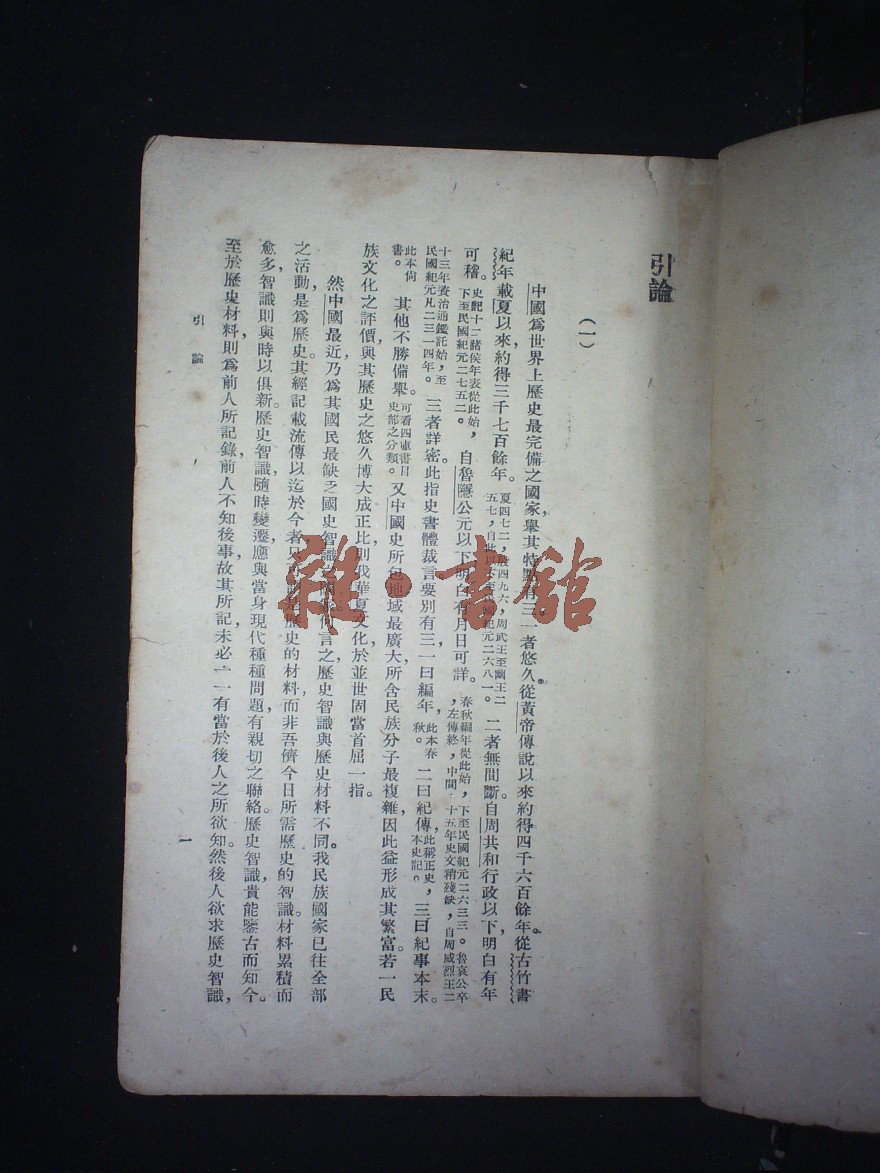 引論
(一)
中國爲世界上歷史最完備之國家,舉其特點有三。一者悠久。從黃帝傳說以來約得四千六百餘年。從古竹書
紀年載夏以來,約得三千七百餘年。夏四七二,殷四九六,周武王至幽王二五七,自此以下至民國紀元二六八一。二者無間斷。自周共和行政以下,明白有年
可稽。史記十二諸侯年表從此始,下至民國紀元二七五二。自魯隱公元以下,明白有月日可詳。春秋編年從此始,下至民國紀元二六三三。魯哀公卒,左傳終,中間十五年史文稍殘缺,自周威烈王二
十三年資治通鑑託始,至民國紀元凡二三一四年。三者詳密。此指史書體裁言。要別有三,一曰編年,此本春秋。二曰紀傳,此稱正史,本史記。三曰紀事本末。
此本尚書。其他不勝備舉。可看四庫書目史部之分類。又中國史所包地域最廣大,所含民族分子最複雜,因此益形成其繁富。若一民
族文化之評價與其歷史之悠久博大成正比,則我華夏文化於並世固當首屈一指。
然中國最近乃爲其國民最缺乏國史智識之國家。何言之,歷史智識與歷史材料不同。我民族國家已往全部
之活動,是爲歷史。其經記載流傳以迄於今者,只可謂是歷史的材料,而非吾儕今日所需歷史的智識。材料累積而
愈多,智識則與時以俱新。歷史智識,隨時變遷,應與當身現代種種問題,有親切之聯絡。歷史智識,貴能鑒古而知今。
至於歷史材料,則爲前人所記錄,前人不知後事,故其所記,未必一一有當於後人之所欲知。然後人欲求歷史智識,
引論
一
雜·書館